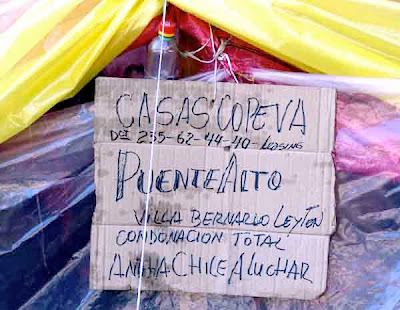 CASAS COPEVA
Del 255-62-44-40-LEASING
PUENTE ALTO
VILLA BERNARDO LEYTON
CONDONACION TOTAL
ANDHA CHILE A LUCHAR